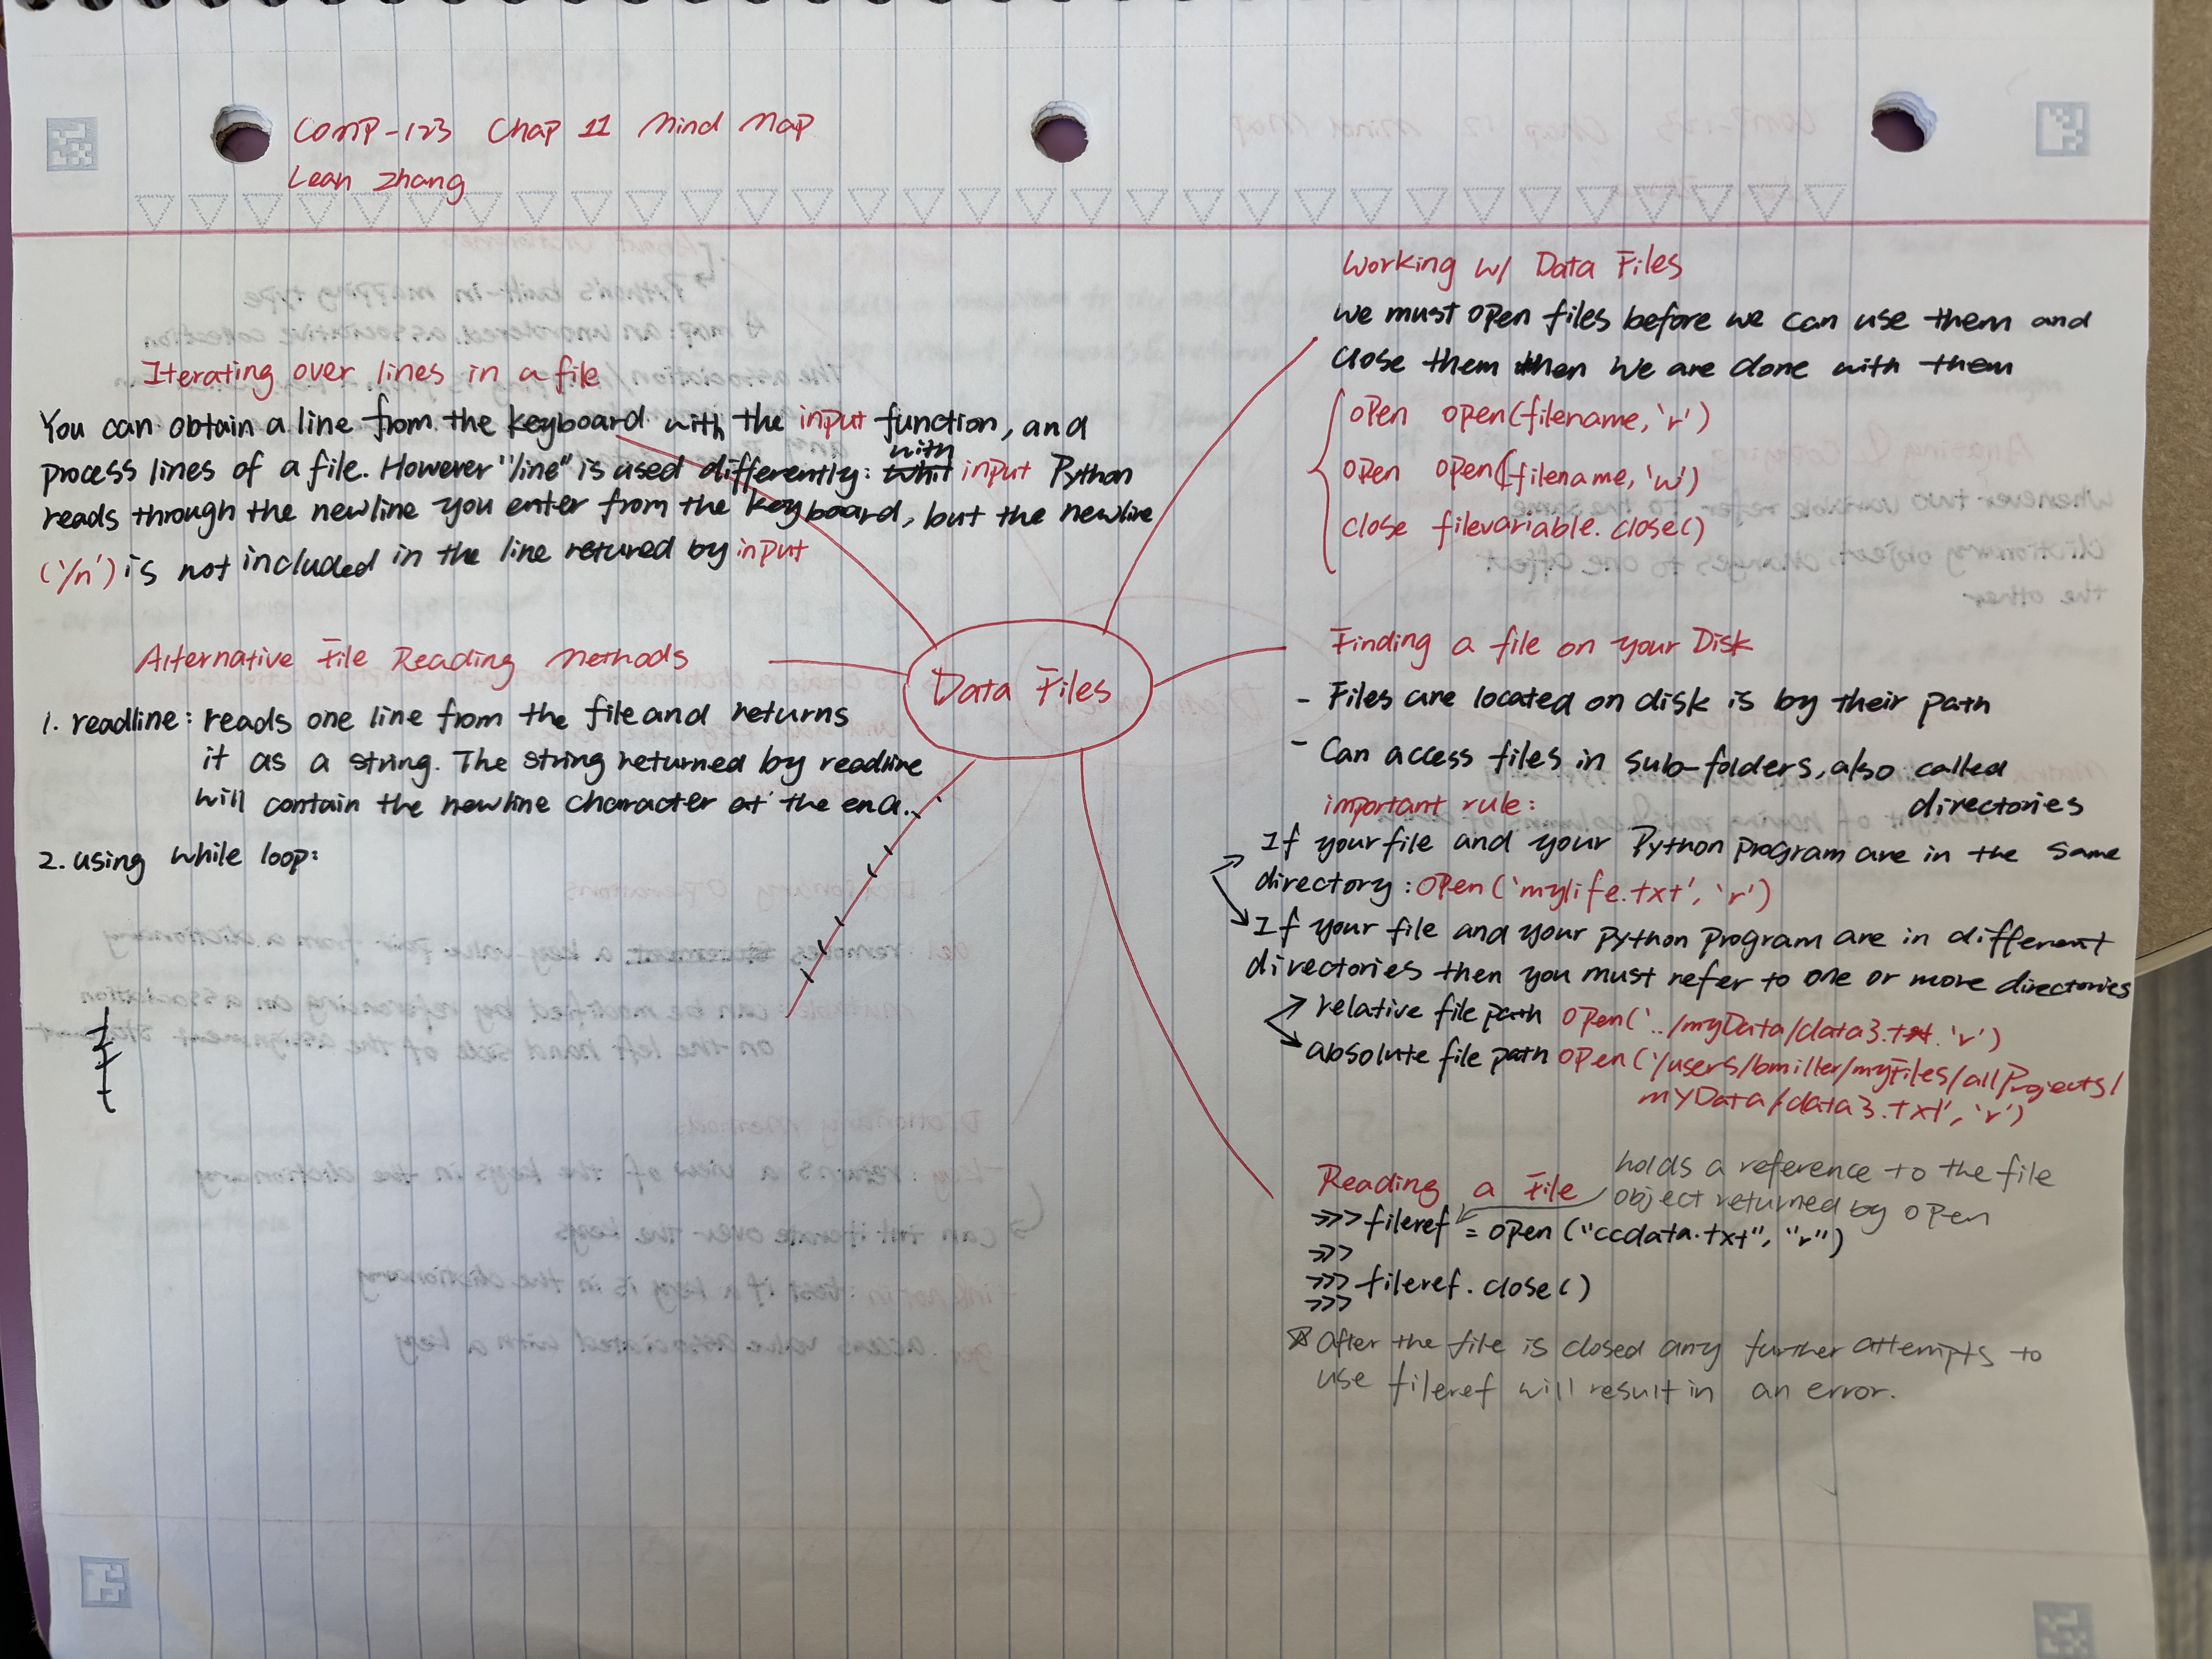 COMP-123 Chap 11 Mind Map
Lean Zhang
Iterating over lines in a file
You can obtain a line from the keyboard with the input function, and
process lines of a file. However "line" is used differently: with input Python
reads through the newline you enter from the keyboard, but the newline
('/n') is not included in the line retured by input
Alternative File Reading Methods
1. readline: reads one line from the file and returns
it as a string. The string returned by readline
will contain the newline character at the end.
2. using while loop:
Data Files
Working w/ Data Files
we must open files before we can use them and
close them when we are done with them
open open(filename, 'r')
open open(filename, 'w')
close filevariable.close()
Finding a file on your Disk
- Files are located on disk is by their path
- Can access files in sub-folders, also called
directories
important rule:
If your file and your Python program are in the same
directory: open('mylife.txt', 'r')
If your file and your python program are in different
directories then you must refer to one or more directories
relative file path open('../myData/data3.txt. 'r')
absolute file path open('/users/bmiller/myFiles/allProjects/
myData/data3.txt', 'r')
Reading a File
holds a reference to the file
object returned by open
>>> fileref = open ("ccdata.txt", "r")
>>>
>>> fileref.close()
>>>
☆ After the file is closed any further attempts to
use fileref will result in an error.